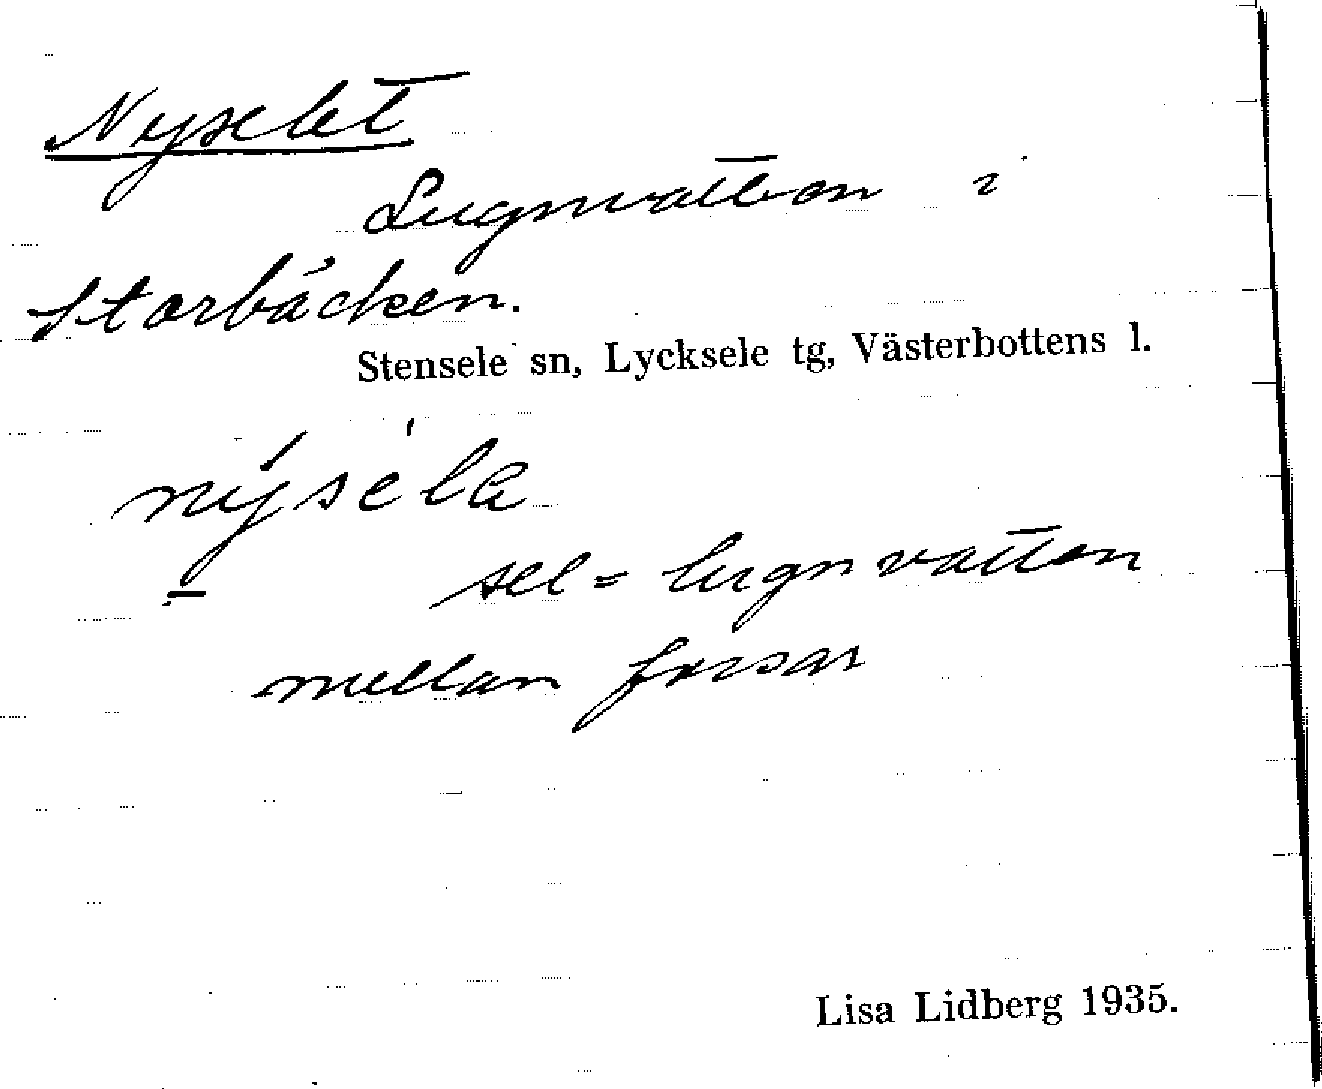 Nyselet
Lugnvatten i
Storbäcken.
Stensele sn, Lycksele tg, Västerbottens l.
nýsela
sel = lugnvatten
mellan forsar
Lisa Lidberg 1935.